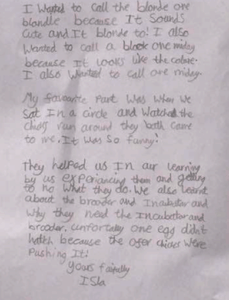 I Wanted to Call the blonde one
blondie because It Sounds
Cute and It blonde to! I also
Wanted to call a black one midey
because It looks like the colour.
I also Wanted to Call one midey.
My favourite Part Was When We
Sat In a Circle and Watched the
chicks ran around they both come
to me. It Was So funny!
They helped us In our learning
by us experiancing them and getting
to no What they do. We also learnt
about the brooder and Incubator and
Why they need the Incubator and
brooder. unfortunly one egg didn't
hatch because the other chicks Were
Pushing It!
Yours faithfully
ISla